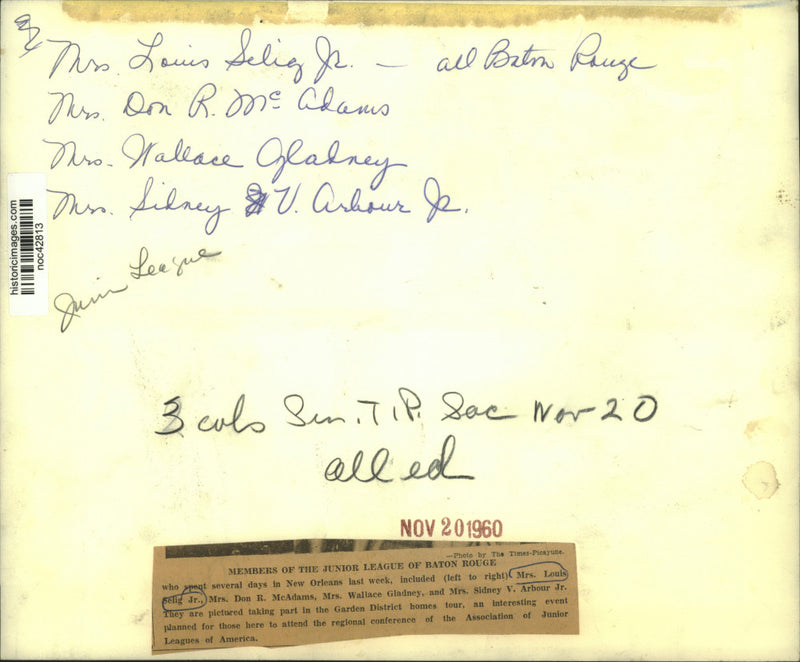 Mrs. Louis Selig Jr. — all Baton Rouge
Mrs. Don R. McAdams
Mrs. Wallace Gladney
Mrs. Sidney V. Arbour Jr.
historicimages.com
noc42813
Junior League
3 cols Sun. T.P. Soc Nov 20
all ed
NOV 20 1960
—Photo by The Times-Picayune.
MEMBERS OF THE JUNIOR LEAGUE OF BATON ROUGE
who spent several days in New Orleans last week, included (left to right) Mrs. Louis
Selig Jr., Mrs. Don R. McAdams, Mrs. Wallace Gladney, and Mrs. Sidney V. Arbour Jr.
They are pictured taking part in the Garden District homes tour, an interesting event
planned for those here to attend the regional conference of the Association of Junior
Leagues of America.